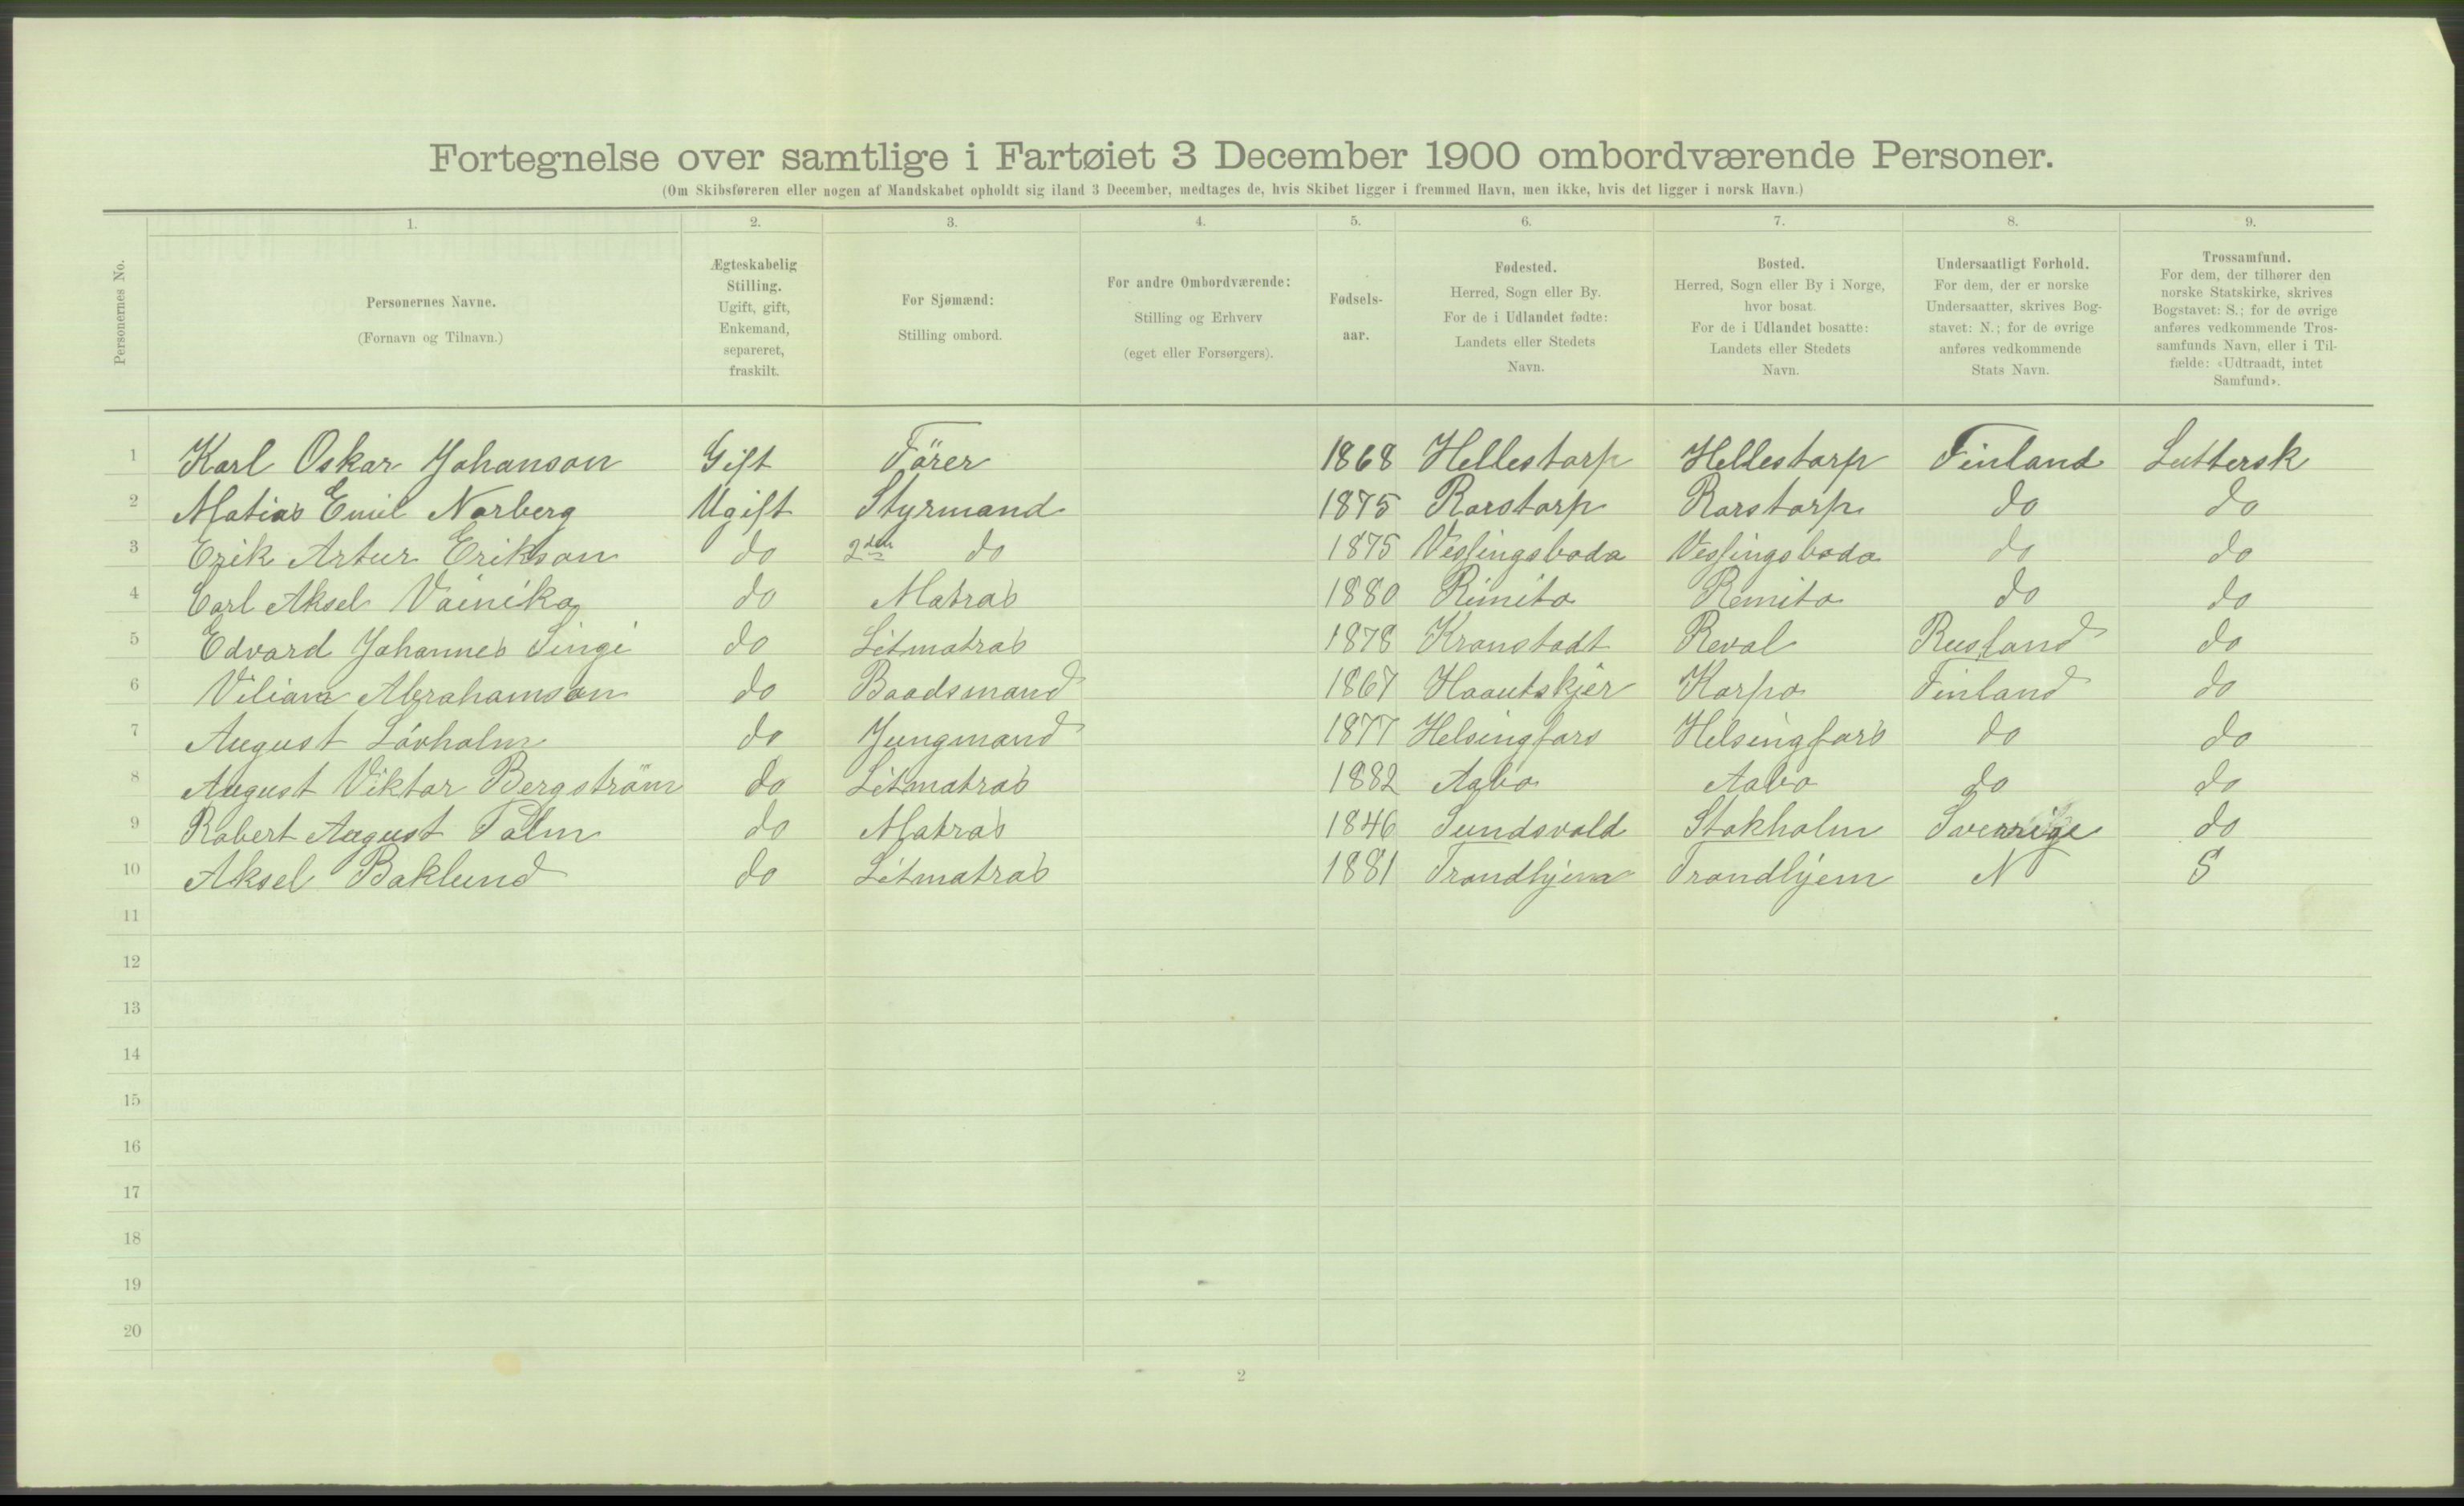 Fortegnelse over samtlige i Fartøiet 3 December 1900 ombordværende Personer.
(Om Skibsføreren eller nogen af Mandskabet opholdt sig iland 3 December, medtages de, hvis Skibet ligger i fremmed Havn, men ikke, hvis det ligger i norsk Havn.)
Personernes No.
1. Personernes Navne. (Fornavn og Tilnavn.)
2. Ægteskabelig Stilling. Ugift, gift, Enkemand, separeret, fraskilt.
3. For Sjømænd: Stilling ombord.
4. For andre Ombordværende: Stilling og Erhverv (eget eller Forsørgers).
5. Fødsels-aar.
6. Fødested. Herred, Sogn eller By. For de i Udlandet fødte: Landets eller Stedets Navn.
7. Bosted. Herred, Sogn eller By i Norge, hvor bosat. For de i Udlandet bosatte: Landets eller Stedets Navn.
8. Undersaatligt Forhold. For dem, der er norske Undersaatter, skrives Bogstavet: N.; for de øvrige anføres vedkommende Stats Navn.
9. Trossamfund. For dem, der tilhører den norske Statskirke, skrives Bogstavet: S.; for de øvrige anføres vedkommende Trossamfunds Navn, eller i Tilfælde: «Udtraadt, intet Samfund».
1 Karl Oskar Johanson Gift Förer 1868 Hellestorp Hellestorp Finland Luttersk
2 Matias Emil Norberg Ugift Styrmand 1875 Rorstorp Rorstorp do do
3 Erik Artur Erikson do 2den do 1875 Vessingsboda Vessingsboda do do
4 Carl Aksel Vainika do Matros 1880 Rimito Remito do do
5 Edvard Johannes Singi do Letmatros 1878 Kronstadt Reval Rusland do
6 Viliam Abrahamson do Baadsmand 1867 Haautskjer Korpo Finland do
7 August Lövholm do Jungmand 1877 Helsingfors Helsingfors do do
8 August Viktor Bergström do Letmatros 1882 Aabo Aabo do do
9 Robert August Palm do Matros 1846 Sundsvald Stokholm Sverrige do
10 Aksel Baklund do Letmatros 1881 Trondhjem Trondhjem N S
11
12
13
14
15
16
17
18
19
20
2